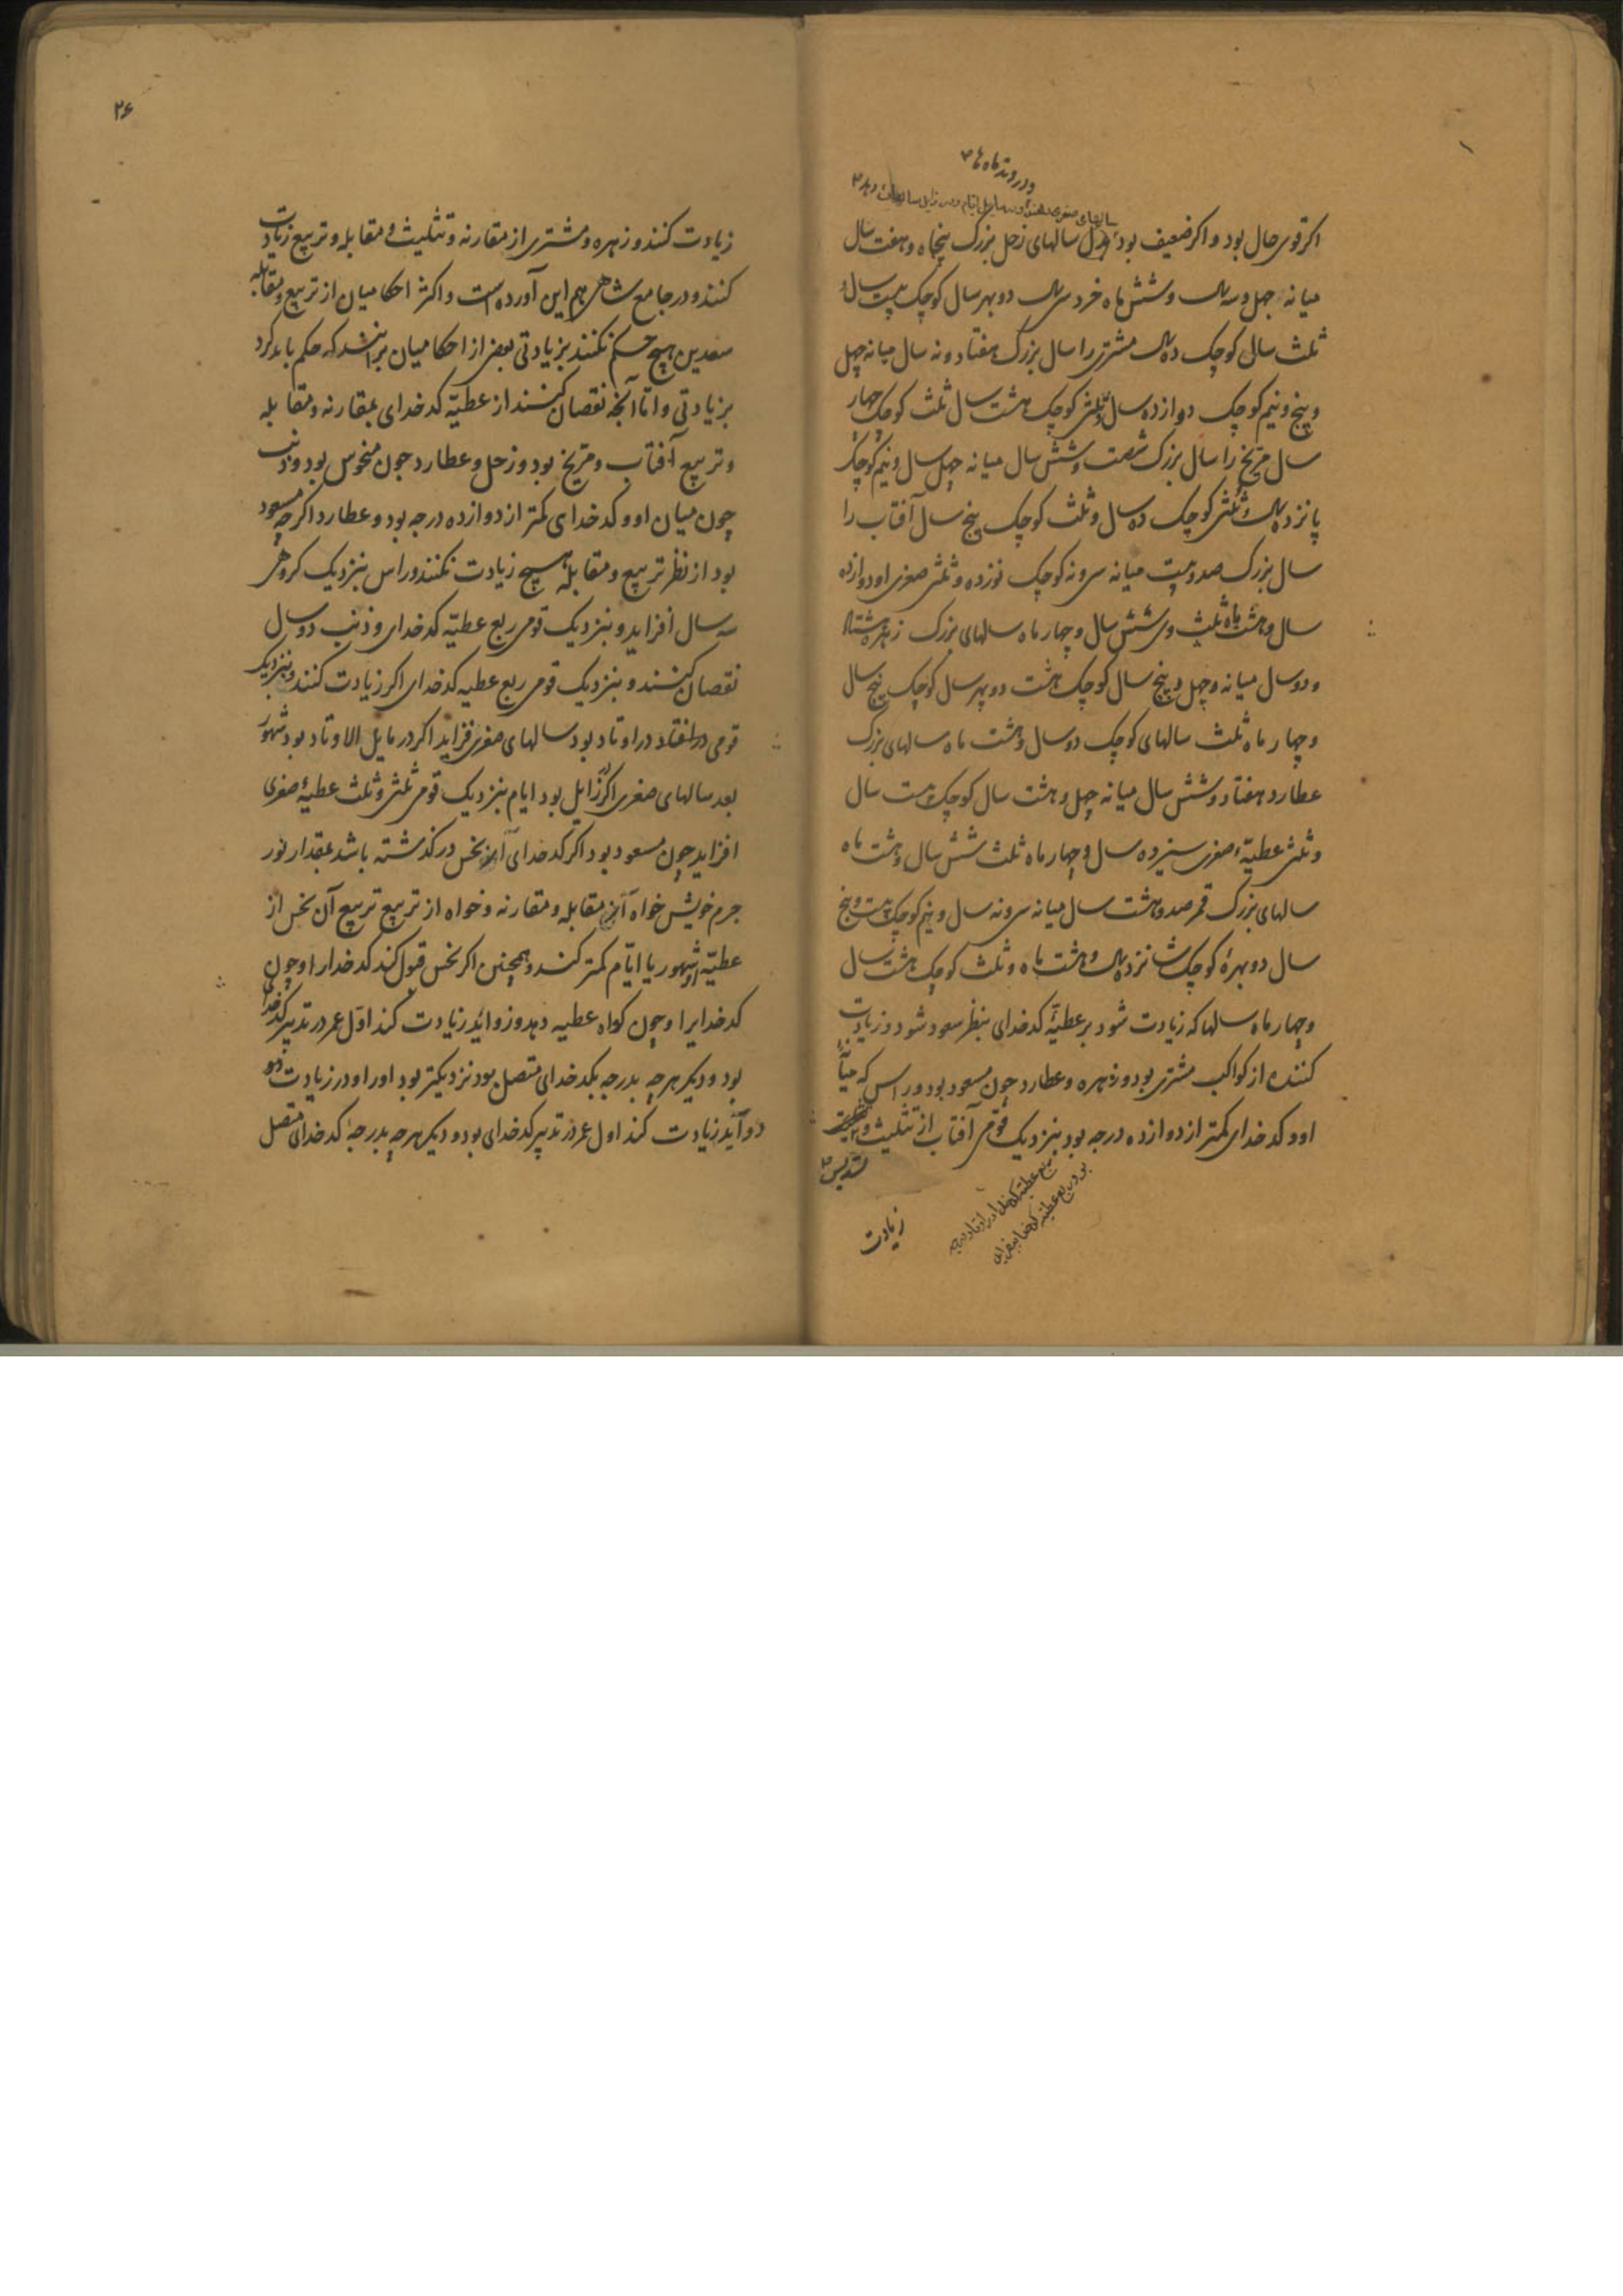 اکر قوی حال بود و اکر ضعیف بود اول سالهای زحل بزرک پنجاه و هفت سال
میانه چهل و سه سال و شش ماه خرد سی سال دو بهر سال کوچک بیست سال و
ثلث سال کوچک ده سال مشتری را سال بزرک هفتاد و نه سال میانه چهل
و پنج و نیم کوچک دوازده سال و ثلثی کوچک هشت سال ثلث کوچک چهار
سال مریخ را سال بزرک شصت و شش سال میانه چهل سال و نیم کوچک
پانزده سال و ثلثی کوچک ده سال و ثلث کوچک پنج سال آفتاب را
سال بزرک صد و بیست میانه سی و نه کوچک نوزده و ثلثی صغری او دوازده
سال و هشت ماه ثلث وی شش سال و چهار ماه سالهای بزرک زهره هشتاد
و دو سال میانه و چهل و پنج سال کوچک هشت دو بهر سال کوچک پنج سال
و چهار ماه ثلث سالهای کوچک دو سال و هشت ماه سالهای بزرک
عطارد هفتاد و شش سال میانه چهل و هشت سال کوچک بیست سال
و ثلثی عطیهٔ صغری سیزده سال و چهار ماه ثلث شش سال و هشت ماه
سالهای بزرک قمر صد و هشت سال میانه سی و نه سال و نیم کوچک بیست و پنج
سال دو بهرهٔ کوچک شانزده سال و هشت ماه و ثلث کوچک هشت سال
و چهار ماه سالها که زیادت شود بر عطیّهٔ کدخدای بنظر سعود شود و زیادت
کننده از کواکب مشتری بود و زهره و عطارد چون مسعود بود و راس که میان
او و کدخدای کمتر از دوازده درجه بود بنزدیک قومی آفتاب از تثلیث و
تسدیس
زیادت
۲۶
زیادت کنند و زهره و مشتری از مقارنه و تثلیث و مقابله و تربیع زیادت
کنند و در جامع شاهی هم این آورده است و اکثر احکامیان از تربیع و مقابله
سعدین هیچ حکم نکنند بزیادتی بعضی از احکامیان برانند که حکم باید کرد
بزیادتی و اما آنچه نقصان کنند از عطیّه کدخدای بمقارنه و مقابله
و تربیع آفتاب و مریخ بود و زحل و عطارد چون منحوس بود و ذنب
چون میان او و کدخدای کمتر از دوازده درجه بود و عطارد اکر چه مسعود
بود از نظر تربیع و مقابله هیچ زیادت نکنند و راس بنزدیک کروهی
سه سال افزاید و بنزدیک قومی ربع عطیّه کدخدای و ذنب دو سال
نقصان کنند و بنزدیک قومی ربع عطیه کدخدای اکر زیادت کنند و بنزدیک
قومی در اوتاد بود سالهای صغری فزاید اکر در مایل الاوتاد بود شهور
بعد سالهای صغری اکر زایل بود ایام بنزدیک قومی ثلثی و ثلث عطیهٔ صغری
افزاید چون مسعود بود اکر کدخدای از نحس در کذشته باشد بمقدار نور
جرم خویش خواه از مقابله و مقارنه و خواه از تربیع تربیع آن نحس از
عطیّه شهور یا ایّام کمتر کند و همچنین اکر نحس قبول کند کدخدا را و چون
کدخدایرا و چون کواه عطیه دهد و زواید زیادت کند اوّل عمر در تدبیر کدخدای
بود و دیکر هر چه بدرجه بکدخدای متصل بود نزدیکتر بود او را و در زیادت
زیادت کند اول عمر در تدبیر کدخدای بود و دیکر هر چه بدرجهٔ کدخدای متصل